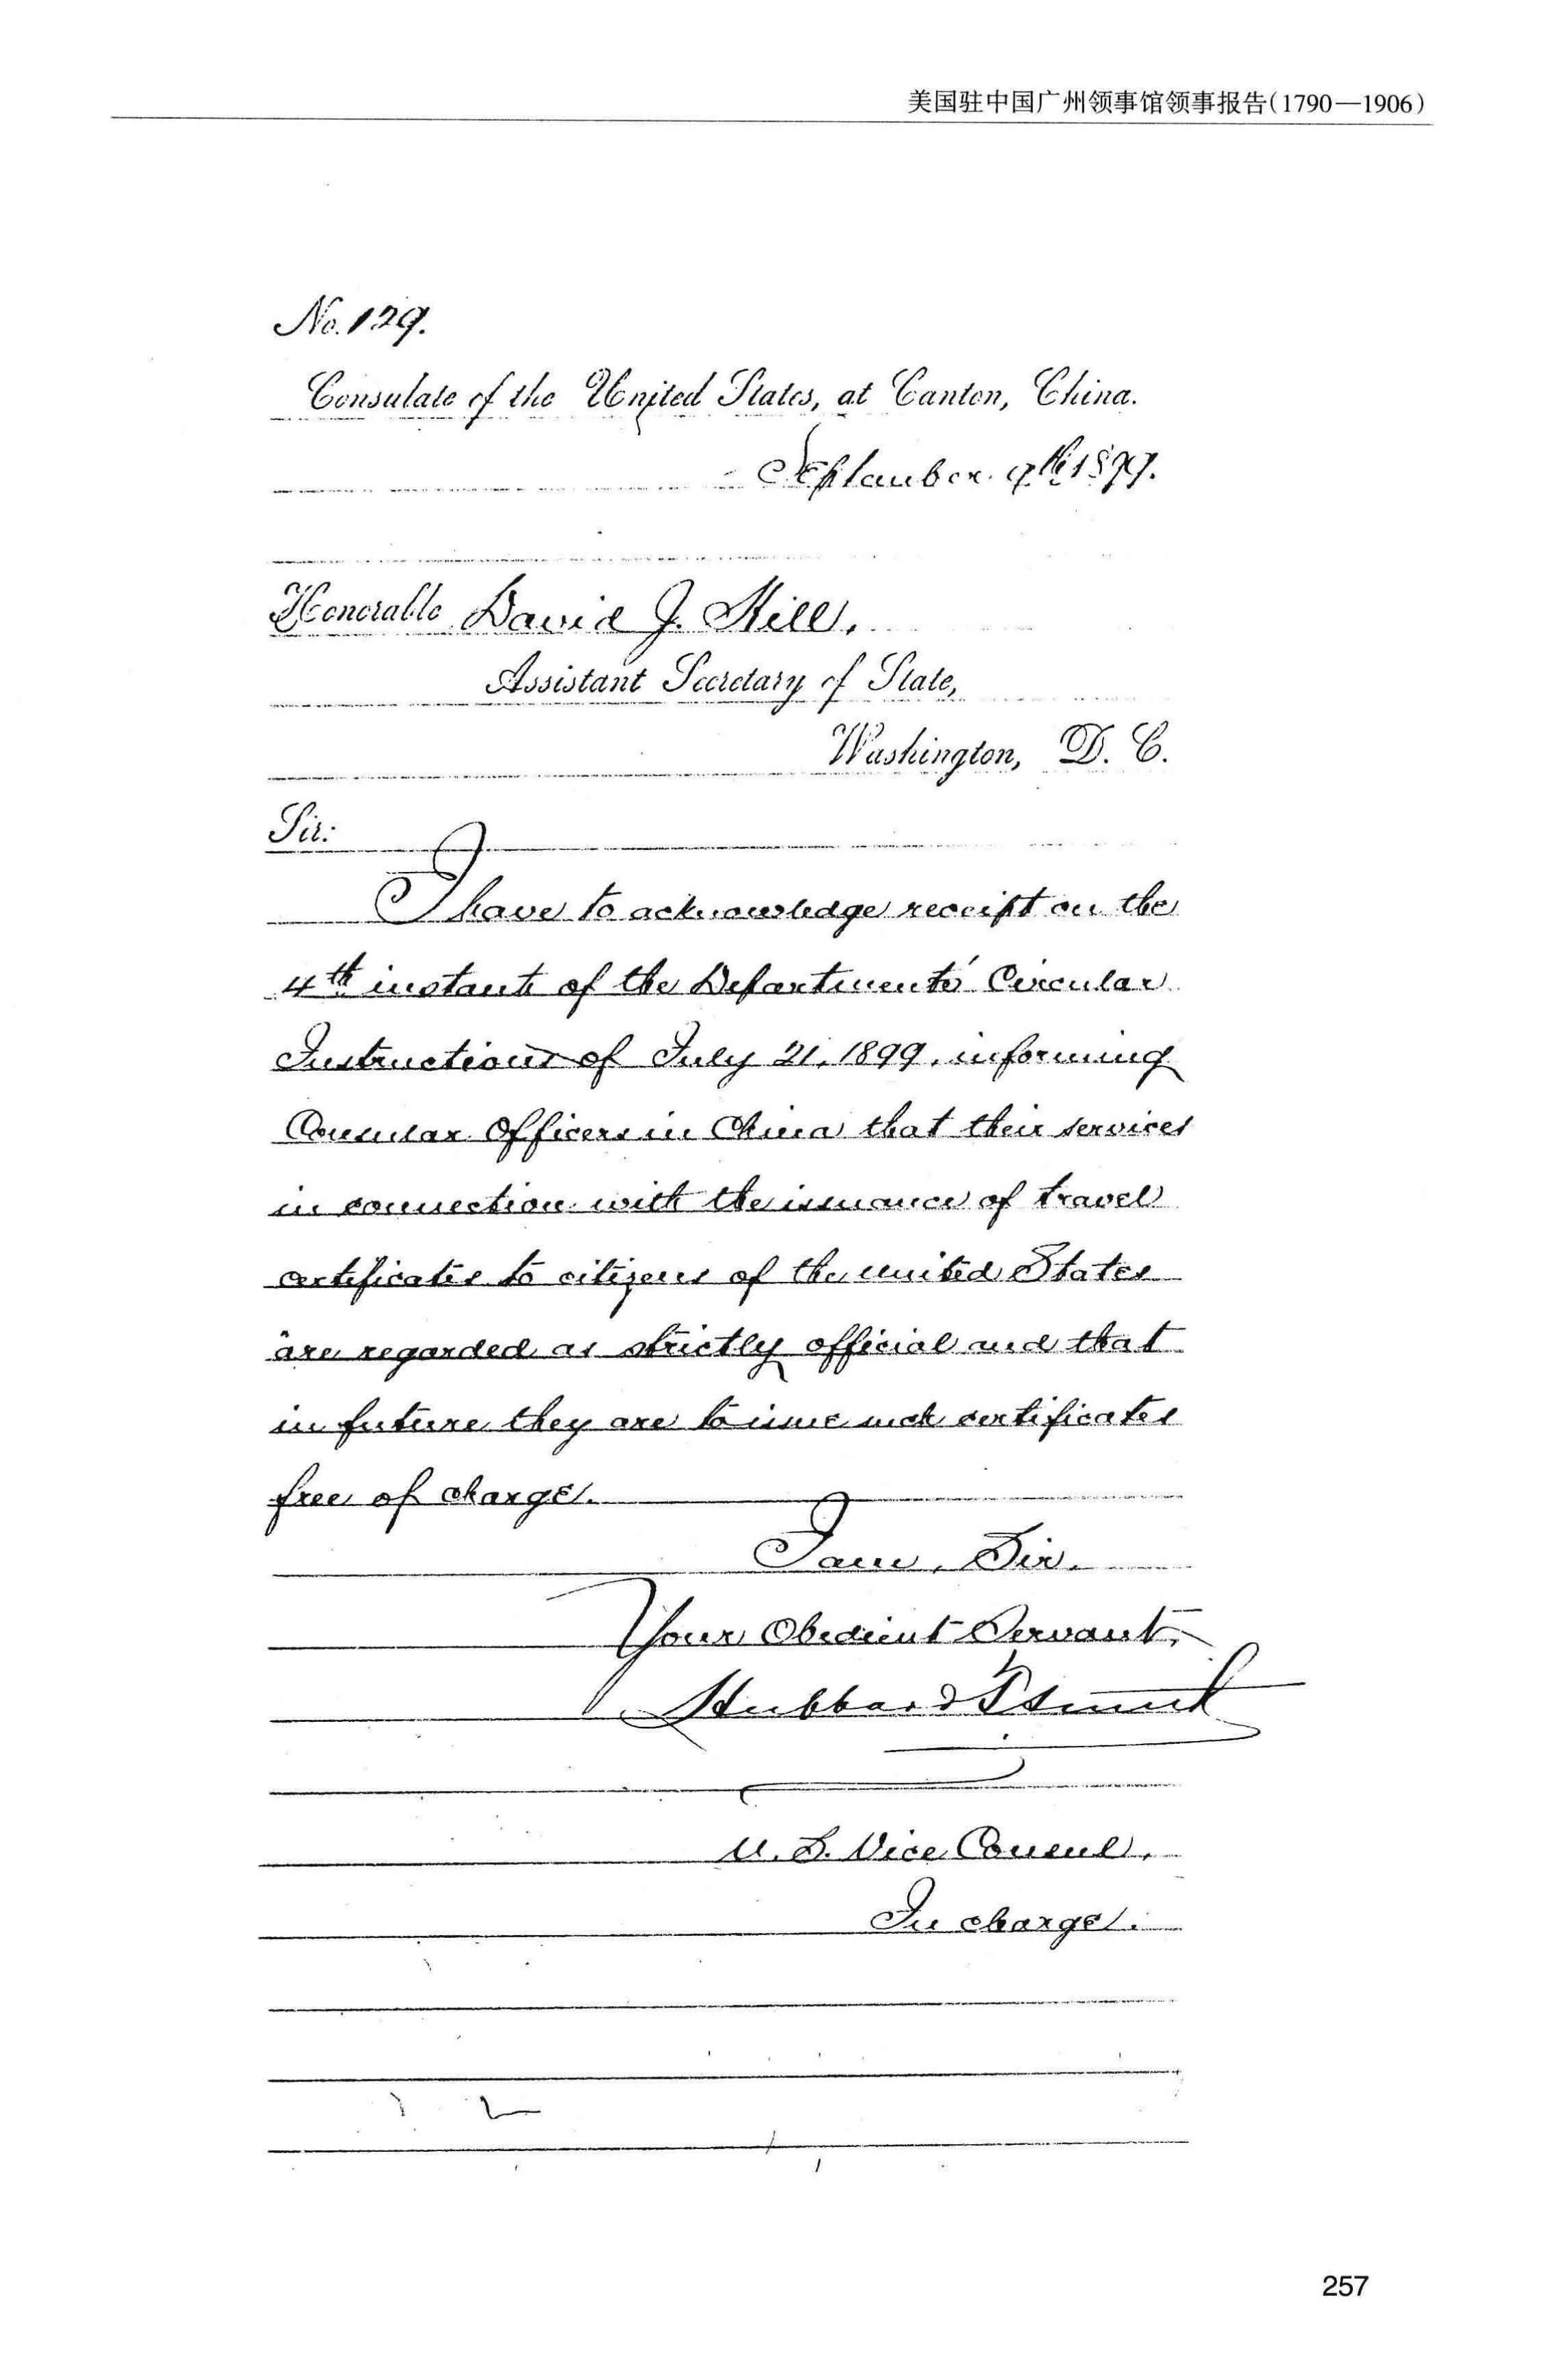 美国驻中国广州领事馆领事报告(1790—1906)
No. 129.
Consulate of the United States, at Canton, China.
September 9th 1899.
Honorable David J. Hill,
Assistant Secretary of State,
Washington, D. C.
Sir:
I have to acknowledge receipt on the
4th instant of the Department's Circular
Instructions of July 21, 1899, informing
Consular Officers in China that their services
in connection with the issuance of travel
certificates to citizens of the United States
are regarded as strictly official and that
in future they are to issue such certificates
free of charge.
I am, Sir,
Your Obedient Servant,
Hubbard T. Smith
U. S. Vice Consul,
In charge.
257